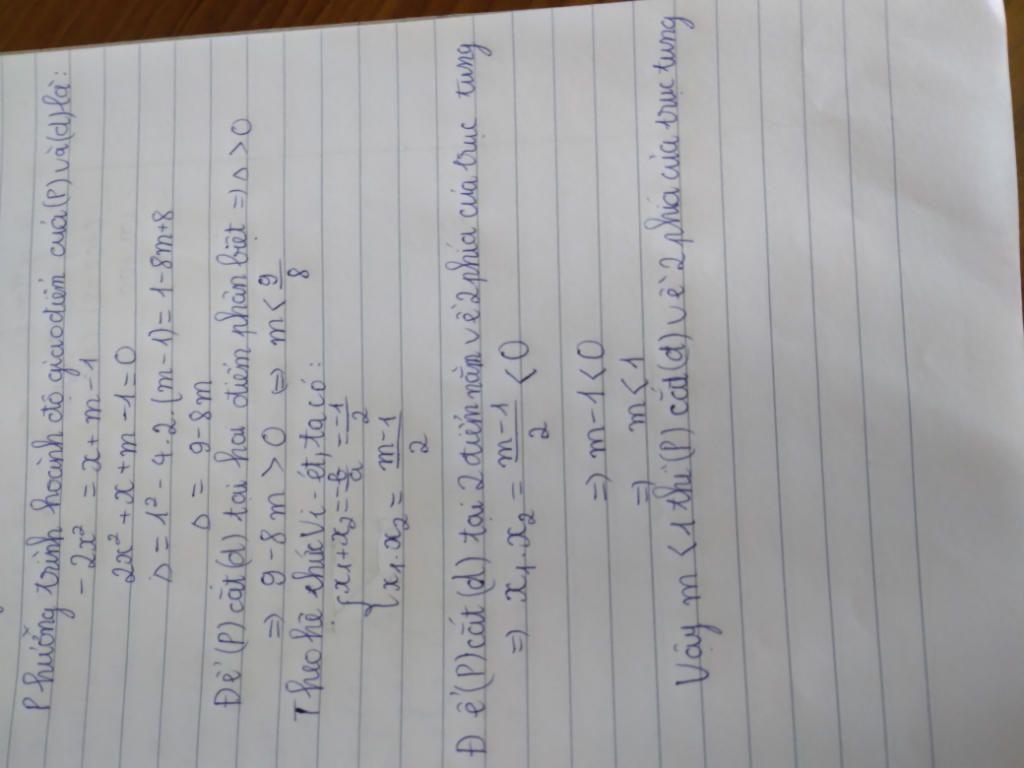 Phương trình hoành độ giao điểm của (P) và (d) là:
- 2x² = x + m - 1
2x² + x + m - 1 = 0
Δ = 1² - 4.2.(m - 1) = 1 - 8m + 8
Δ = 9 - 8m
Để (P) cắt (d) tại hai điểm phân biệt => Δ > 0
=> 9 - 8m > 0 <=> m < 9/8
Theo hệ thức Vi-ét, ta có:
{ x₁ + x₂ = -b/a = -1/2
{ x₁ . x₂ = m - 1/2
Để (P) cắt (d) tại 2 điểm nằm về 2 phía của trục tung
=> x₁ . x₂ = m - 1/2 < 0
=> m - 1 < 0
=> m < 1
Vậy m < 1 thì (P) cắt (d) về 2 phía của trục tung